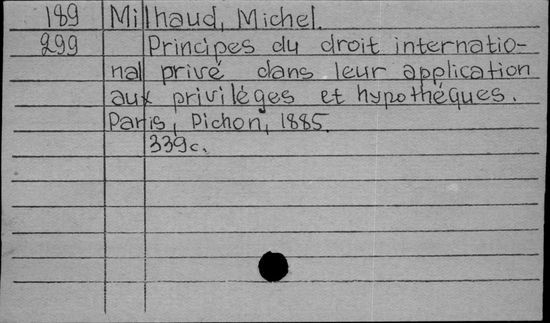 189 Milhaud, Michel.
299 Principes du droit internatio-
nal privé dans leur application
aux priviléges et hypothéques.
Paris, Pichon, 1885.
339c.